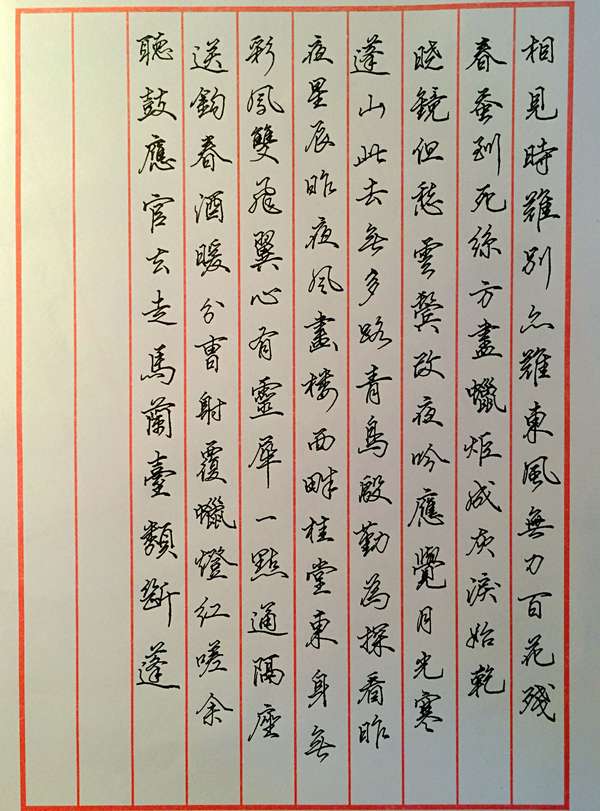 相見時難別亦難東風無力百花殘
春蚕到死絲方盡蠟炬成灰淚始乾
曉鏡但愁雲鬢改夜吟應覺月光寒
蓬山此去無多路青鳥殷勤為探看昨
夜星辰昨夜風畫樓西畔桂堂東身無
彩鳳雙飛翼心有靈犀一點通隔座
送鉤春酒暖分曹射覆蠟燈紅嗟余
聽鼓應官去走馬蘭臺類斷蓬